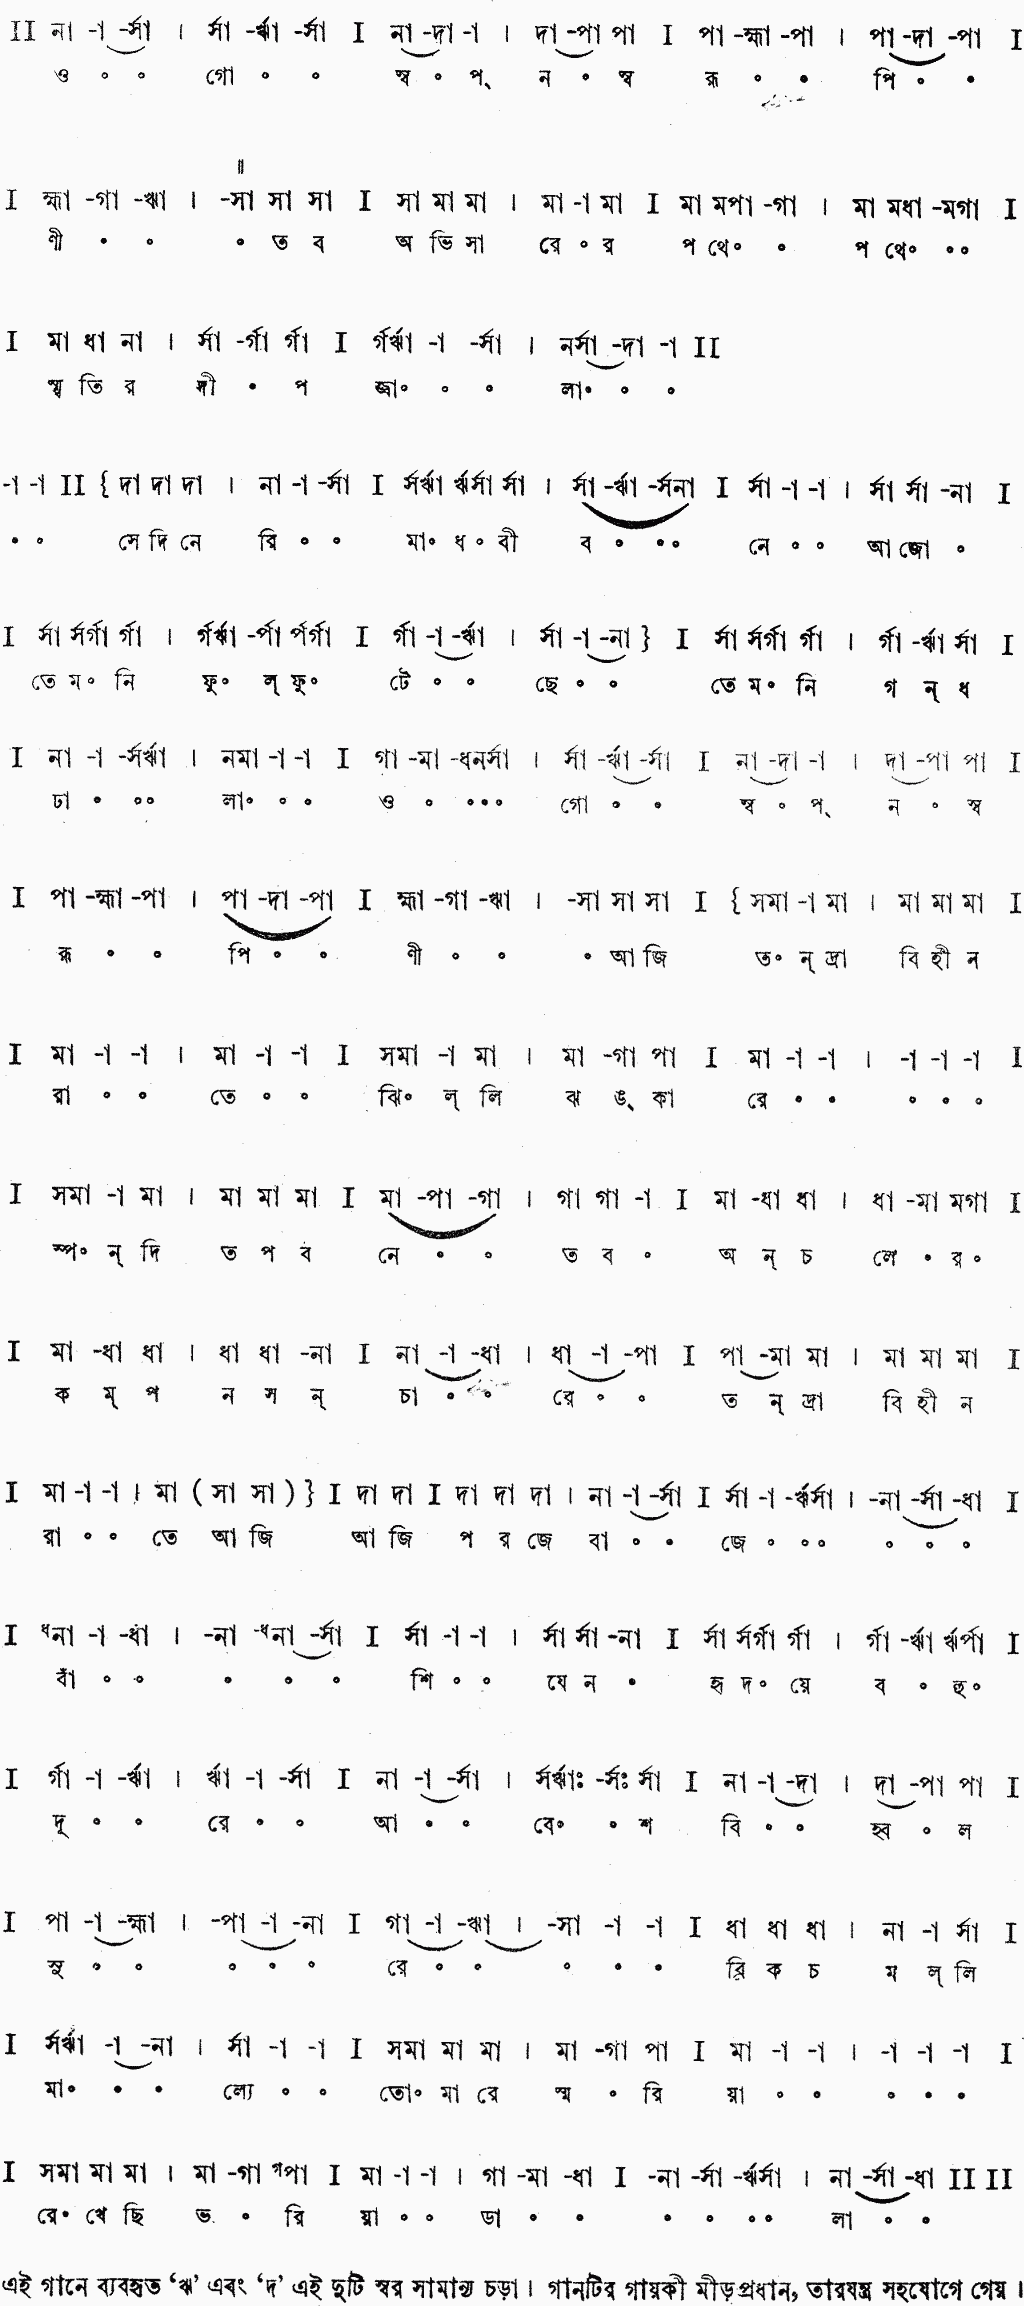 II না -া -র্সা । র্সা -র্ঋা -র্সা I না -দা -া । দা -পা পা I পা -হ্মা -পা । পা -দা -পা I
ও ॰ ॰ গো ॰ ॰ স্ব ॰ প্ ন ॰ স্ব রূ ॰ ॰ পি ॰ ॰
I হ্মা -গা -ঋা । -সা সা সা I সা মা মা । মা -া মা I মা মপা -গা । মা মধা -মগা I
ণী ॰ ॰ ॰ ত ব অ ভি সা রে ॰ র প থে॰ ॰ প থে॰ ॰॰
I মা ধা না । র্সা -র্গা র্গা I র্গর্ঋা -া -র্সা । নর্সা -দা -া II
স্মৃ তি র দী ॰ প জ্বা॰ ॰ ॰ লা॰ ॰ ॰
-া -া II { দা দা দা । না -া -র্সা I র্সর্ঋা র্ঋর্সা র্সা । র্সা -র্ঋা -র্সনা I র্সা -া -া । র্সা র্সা -না I
॰ ॰ সে দি নে রি ॰ ॰ মা॰ ধ॰ বী ব ॰ ॰॰ নে ॰ ॰ আ জো ॰
I র্সা র্সর্গা র্গা । র্গর্ঋা -র্পা র্পর্গা I র্গা -া -র্ঋা । র্সা -া -না } I র্সা র্সর্গা র্গা । র্গা -র্ঋা র্সা I
তে ম॰ নি ফু॰ ল্ ফু॰ টে ॰ ॰ ছে ॰ ॰ তে ম॰ নি গ ন্ ধ
I না -া -র্সর্ঋা । নমা -া -া I গা -মা -ধনর্সা । র্সা -র্ঋা -র্সা I না -দা -া । দা -পা পা I
ঢা ॰ ॰॰ লা॰ ॰ ॰ ও ॰ ॰॰॰ গো ॰ ॰ স্ব ॰ প্ ন ॰ স্ব
I পা -হ্মা -পা । পা -দা -পা I হ্মা -গা -ঋা । -সা সা সা I { সমা -া মা । মা মা মা I
রূ ॰ ॰ পি ॰ ॰ ণী ॰ ॰ ॰ আ জি ত॰ ন্ দ্রা বি হী ন
I মা -া -া । মা -া -া I সমা -া মা । মা -গা পা I মা -া -া । -া -া -া I
রা ॰ ॰ তে ॰ ॰ ঝি॰ ল্ লি ঝ ঙ্ কা রে ॰ ॰ ॰ ॰ ॰
I সমা -া মা । মা মা মা I মা -পা -গা । গা গা -া I মা -ধা ধা । ধা -মা মগা I
স্প॰ ন্ দি ত প ব নে ॰ ॰ ত ব ॰ অ ন্ চ লে ॰ র॰
I মা -ধা ধা । ধা ধা -না I না -া -ধা । ধা -া -পা I পা -মা মা । মা মা মা I
ক ম্ প ন স ন্ চা ॰ ॰ রে ॰ ॰ ত ন্ দ্রা বি হী ন
I মা -া -া । মা ( সা সা ) } I দা দা I দা দা দা । না -া -র্সা I র্সা -া -র্ঋর্সা । -না -র্সা -ধা I
রা ॰ ॰ তে আ জি আ জি প র জে বা ॰ ॰ জে ॰ ॰॰ ॰ ॰ ॰
I ধনা -া -ধা । -না -ধনা -র্সা I র্সা -া -া । র্সা র্সা -না I র্সা র্সর্গা র্গা । র্গা -র্ঋা র্ঋর্পা I
বাঁ ॰ ॰ ॰ ॰ ॰ শি ॰ ॰ যে ন ॰ হৃ দ॰ য়ে ব ॰ হু॰
I র্গা -া -র্ঋা । র্ঋা -া -র্সা I না -া -র্সা । র্সর্ঋাঃ -র্সঃ র্সা I না -া -দা । দা -পা পা I
দূ ॰ ॰ রে ॰ ॰ আ ॰ ॰ বে॰ ॰ শ বি ॰ ॰ হ্ব ॰ ল
I পা -া -হ্মা । -পা -া -না I গা -া -ঋা । -সা -া -া I ধা ধা ধা । না -া র্সা I
সু ॰ ॰ ॰ ॰ ॰ রে ॰ ॰ ॰ ॰ ॰ রি ক চ ম ল্ লি
I র্সর্ঋা -া -না । র্সা -া -া I সমা মা মা । মা -গা পা I মা -া -া । -া -া -া I
মা॰ ॰ ॰ ল্যে ॰ ॰ তো॰ মা রে স্ম ॰ রি য়া ॰ ॰ ॰ ॰ ॰
I সমা মা মা । মা -গা গপা I মা -া -া । গা -মা -ধা I -না -র্সা -র্ঋর্সা । না -র্সা -ধা II II
রে॰ খে ছি ভ ॰ রি য়া ॰ ॰ ডা ॰ ॰ ॰ ॰ ॰॰ লা ॰ ॰
এই গানে ব্যবহৃত ‘ঋ’ এবং ‘দ’ এই দুটি স্বর সামান্য চড়া। গানটির গায়কী মীড়প্রধান, তারযন্ত্র সহযোগে গেয়।